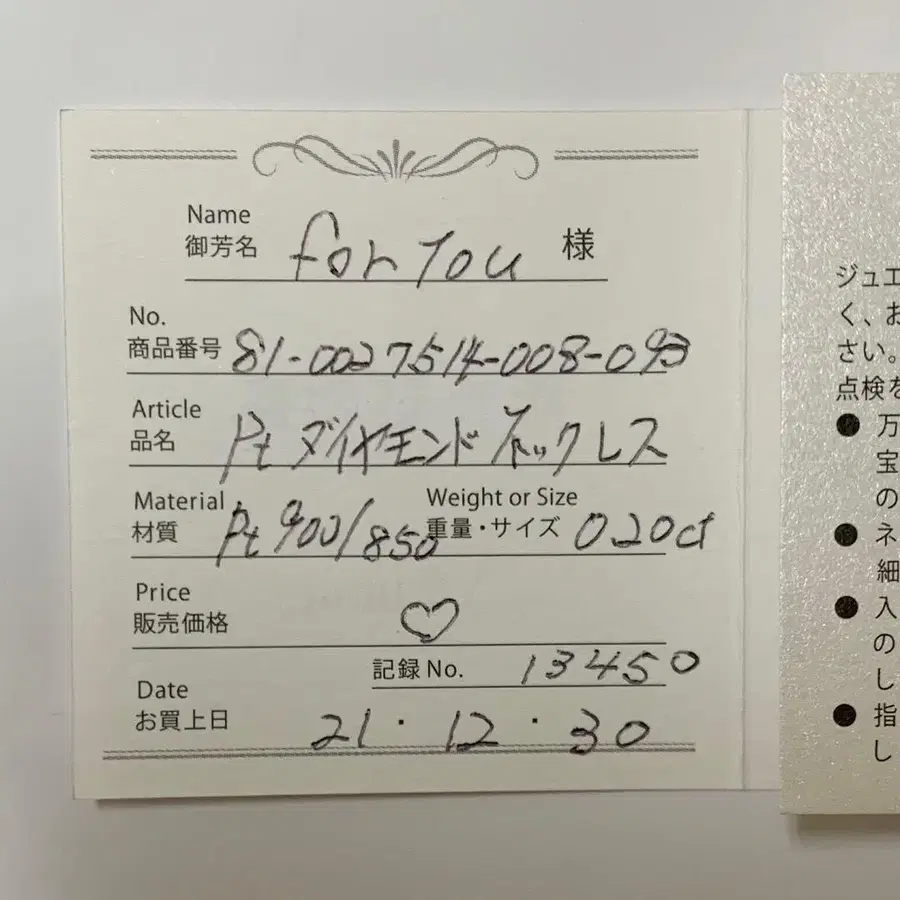 Name
御芳名 for You 様
No.
商品番号 81-0027514-008-093
Article
品名 Pt ダイヤモンド ネックレス
Material
材質 Pt 900/850
Weight or Size
重量・サイズ 0.20ct
Price
販売価格 ♡
記録 No. 13450
Date
お買上日 21・12・30
ジュエ
く、お
さい。
点検を
● 万
宝
の
● ネ
細
● 入
の
し
● 指
し